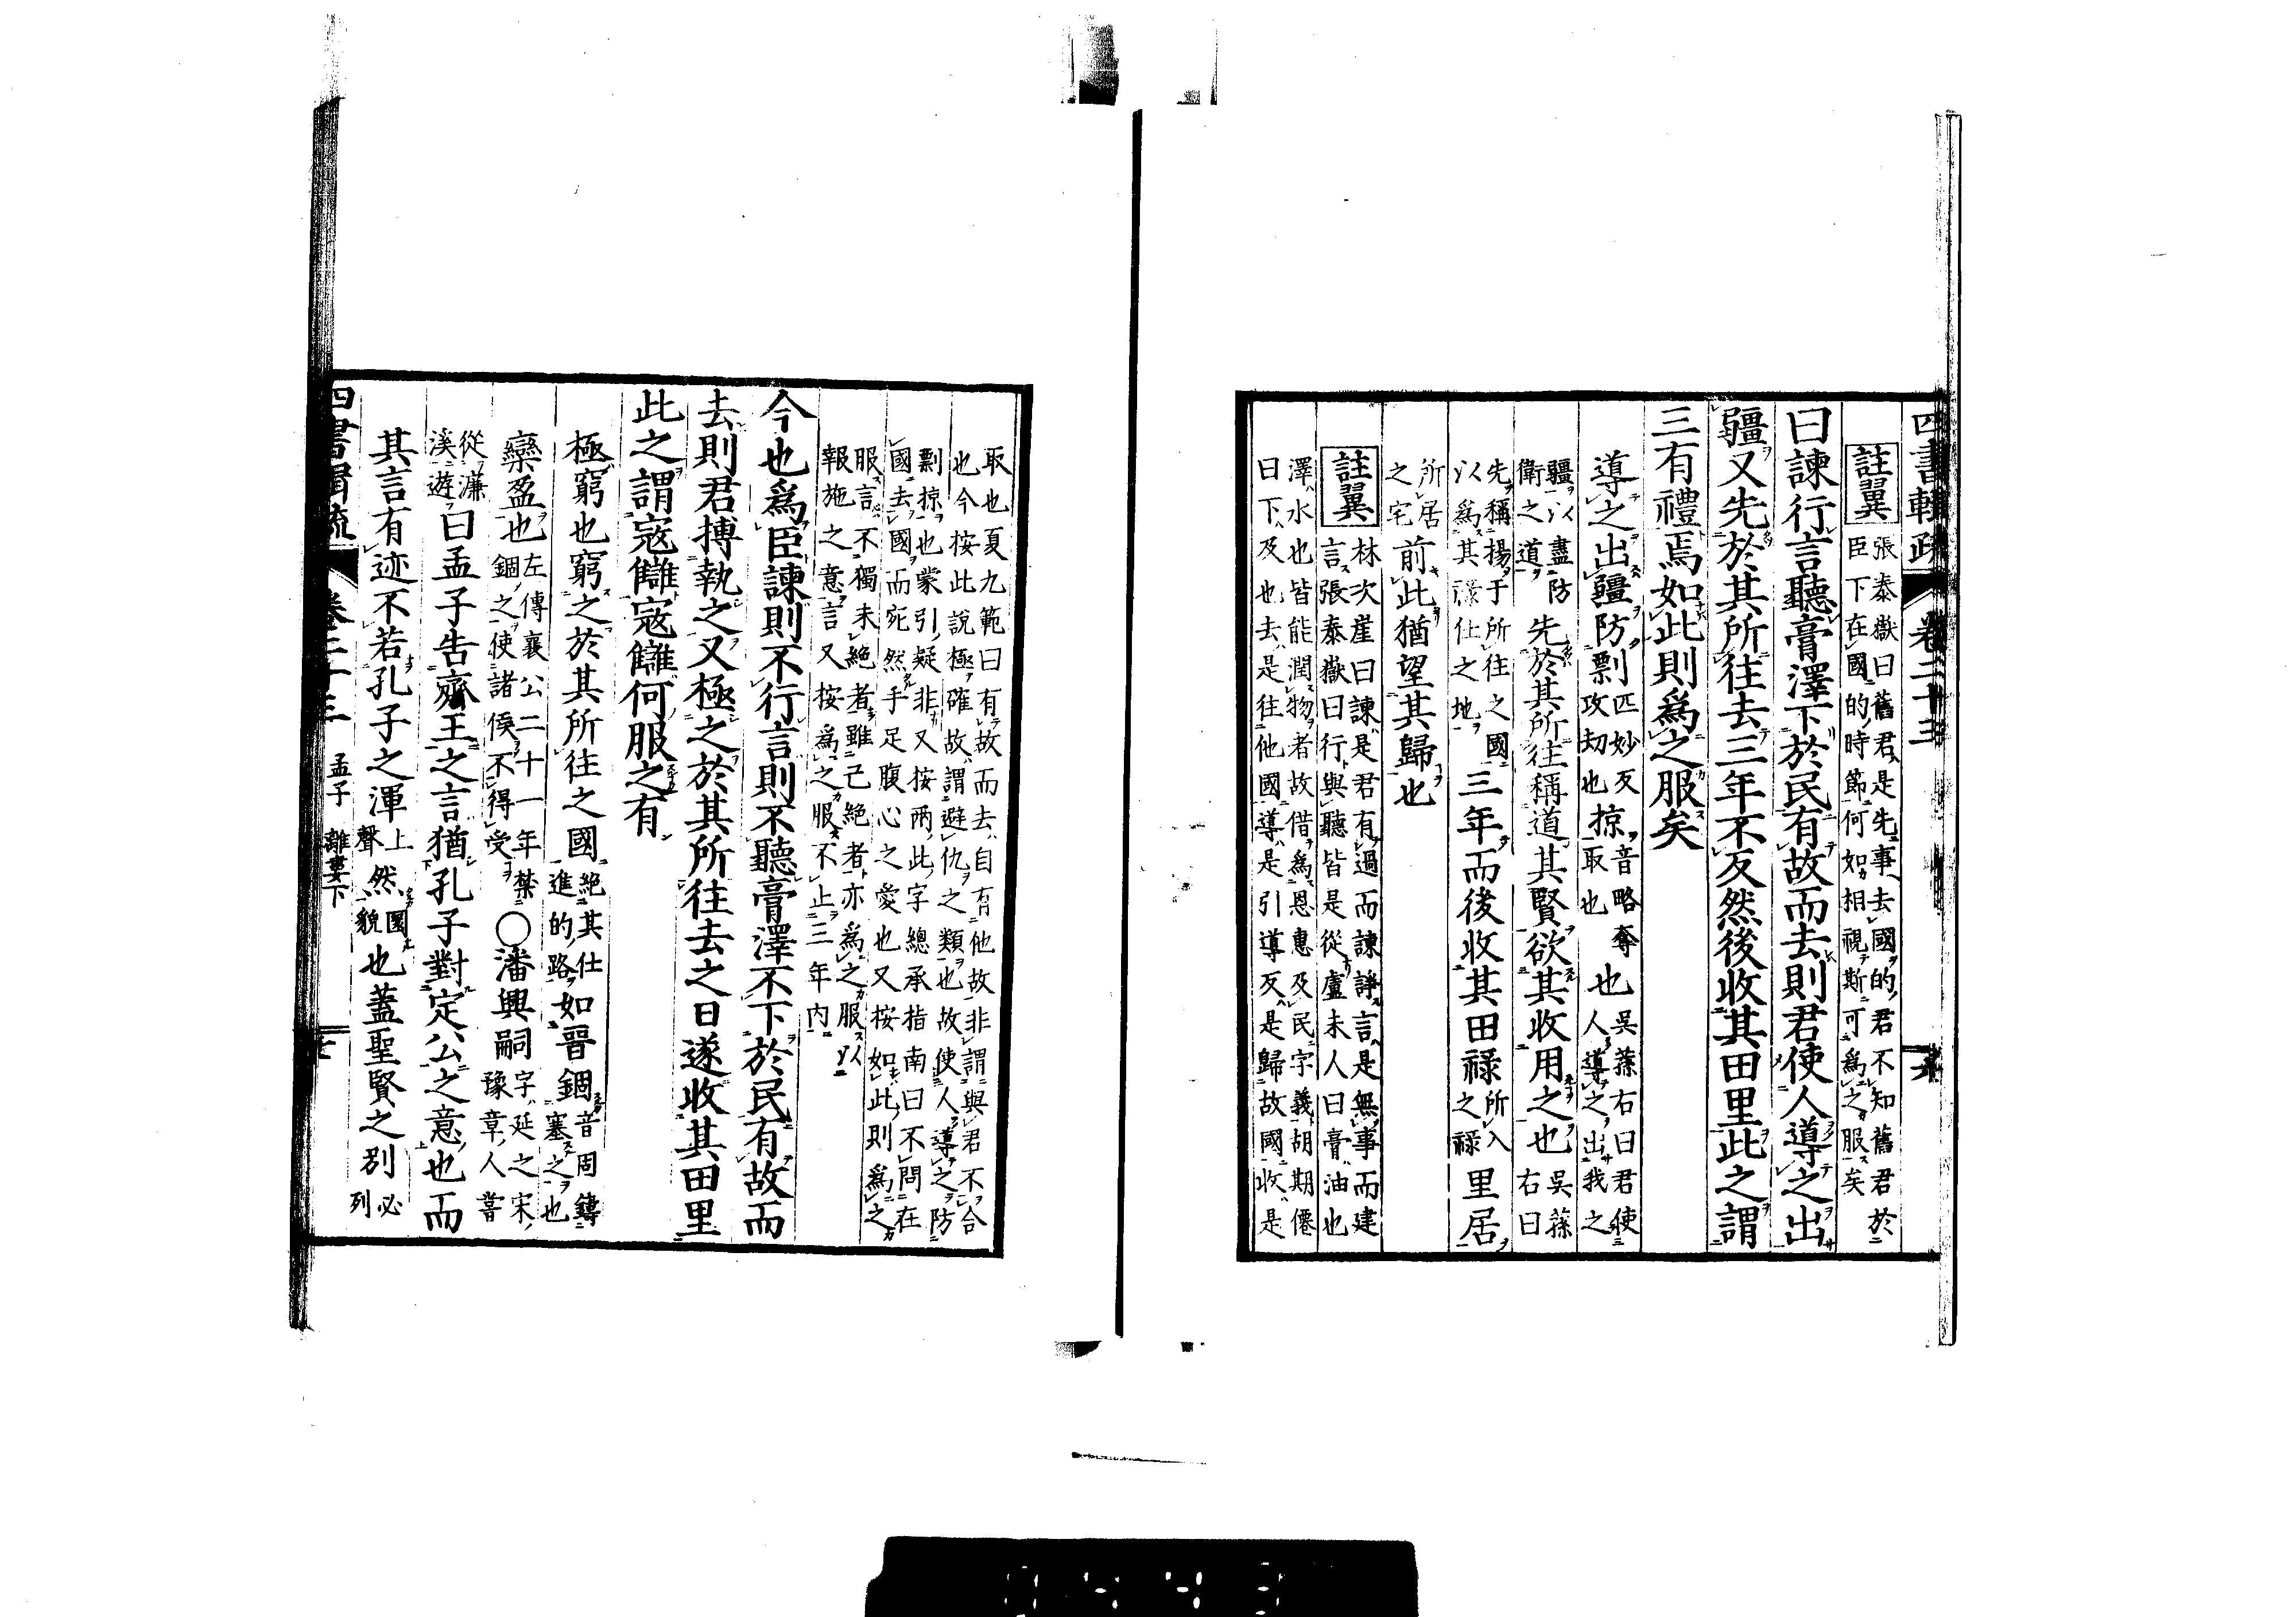 四書輯疏 卷二十三
註翼 張泰嶽曰舊君是先事去國的君不知舊君於
臣下在國的時節何如相視斯可爲之服矣
曰諫行言聽膏澤下於民有故而去則君使人導之出
疆又先於其所往去三年不反然後收其田里此之謂
三有禮焉如此則爲之服矣
導之出疆防剽匹妙反攻劫也掠音略奪取也也吳蓀右曰君使人導之出我之
疆以盡防衛之道先於其所往稱道其賢欲其收用之也吳蓀右曰
先稱揚于所往之國以爲其祿仕之地三年而後收其田祿所入之祿里居
所居之宅前此猶望其歸也
註翼 林次崖曰諫是君有過而諫諍言是無事而建
言張泰嶽曰行與聽皆是從盧未人曰膏油也
澤水也皆能潤物者故借爲恩惠及民字義胡期僊
曰下及也去是往他國導是引導反是歸故國收是
取也夏九範曰有故而去自有他故非謂與君不合
也今按此說極確故謂避仇之類也故使人導之防
剽掠也蒙引疑非又按兩此字總承指南曰不問在
國去國而宛然手足腹心之愛也又按如此則爲之
服言不獨未絕者雖已絕者亦爲之服以
報施之意言又按爲之服不止三年內
今也爲臣諫則不行言則不聽膏澤不下於民有故而
去則君搏執之又極之於其所往去之日遂收其田里
此之謂寇讎寇讎何服之有
極窮也窮之於其所往之國絕其仕進的路如晉錮音周鑄塞之也
欒盈也左傳襄公二十一年禁錮之使諸侯不得受○潘興嗣字延之宋豫章人嘗
從濂溪遊曰孟子告齊王之言猶孔子對定公之意也而
其言有迹不若孔子之渾上聲然圜貌也蓋聖賢之別必列
四書輯疏 卷二十三 孟子 離婁下 七